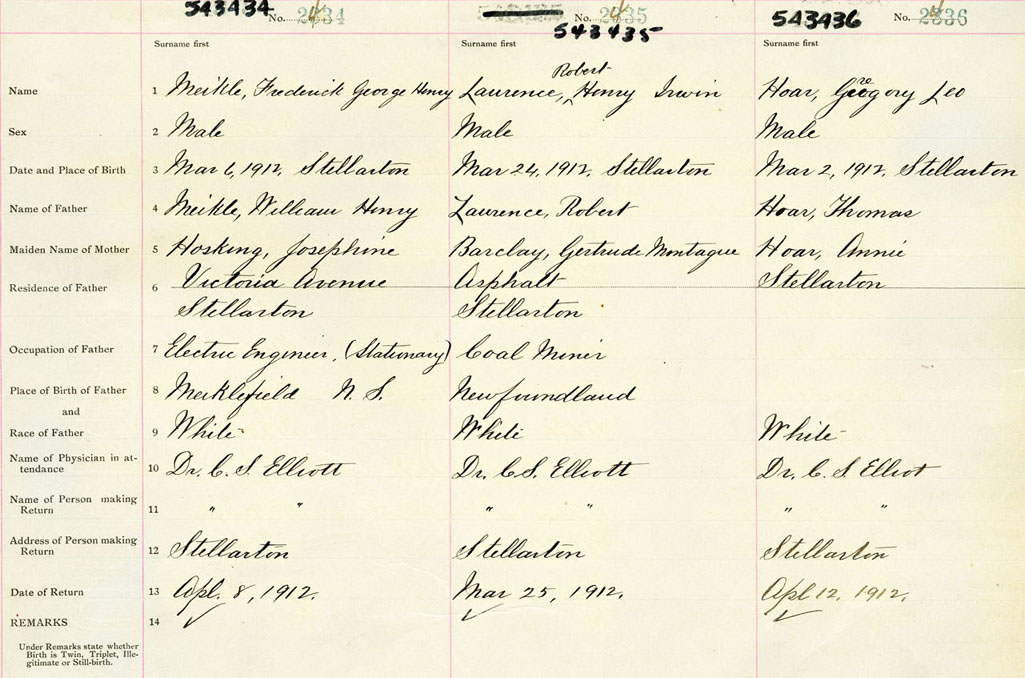 543434 No. 2334 No. 2335 543436 No. 2336
543435
Surname first Surname first Surname first
Robert
Name 1 Meikle, Frederick George Henry Laurence, ^ Henry Irwin Hoar, Gregory Leo
Sex 2 Male Male Male
Date and Place of Birth 3 Mar 6, 1912. Stellarton Mar 24, 1912. Stellarton Mar 2, 1912. Stellarton
Name of Father 4 Meikle, William Henry Laurence, Robert Hoar, Thomas
Maiden Name of Mother 5 Hosking, Josephine Barclay, Gertrude Montague Hoar, Annie
Residence of Father 6 Victoria Avenue Asphalt Stellarton
Stellarton Stellarton
Occupation of Father 7 Electric Engineer, (Stationary) Coal Miner
Place of Birth of Father 8 Merklefield N. S. Newfoundland
and
Race of Father 9 White White White
Name of Physician in at-
tendance 10 Dr. C. S. Elliott Dr. C S. Elliott Dr. C. S. Elliot
Name of Person making
Return 11 " " " " " "
Address of Person making
Return 12 Stellarton Stellarton Stellarton
Date of Return 13 Apl. 8, 1912. Mar 25, 1912. Apl 12, 1912.
REMARKS 14
Under Remarks state whether
Birth is Twin, Triplet, Ille-
gitimate or Still-birth.